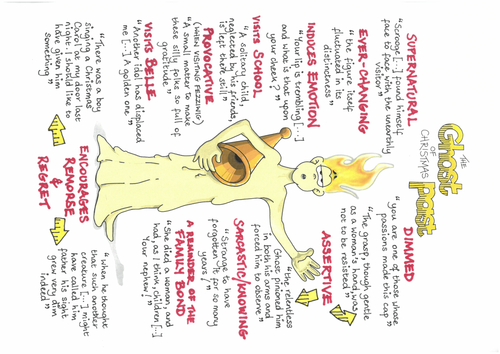 THE
Ghost
OF
CHRISTMAS
Past
SUPERNATURAL
"Scrooge [...] found himself
face to face with the unearthly
visitor"
EVER-CHANGING
"the figure itself
fluctuated in its
distinctness"
INDUCES EMOTION
"Your lip is trembling [...]
and what is that upon
your cheek?"
VISITS SCHOOL
"A solitary child,
neglected by his friends,
is left there still"
PROVOCATIVE
(WHEN VISITING FEZZIWIG)
"A small matter to make
these silly folks so full of
gratitude"
VISITS BELLE
"Another idol has displaced
me [...] A golden one"
"There was a boy
singing a Christmas
Carol at my door last
night: I should like to
have given him
something"
ENCOURAGES
REMORSE &
REGRET
"when he thought
that such another
creature [...] might
have called him
father his sight
grew very dim
indeed"
DIMMED
"you are one of those whose
passions made this cap"
"The grasp, though gentle
as a woman's hand, was
not to be resisted"
ASSERTIVE
"the relentless
Ghost pinioned him
in both his arms and
forced him to observe"
SARCASTIC/KNOWING
"Strange to have
forgotten it for so many
years!"
A REMINDER OF THE
FAMILY BOND
"She died a woman, and
had, as I think, children [...]
Your nephew!"